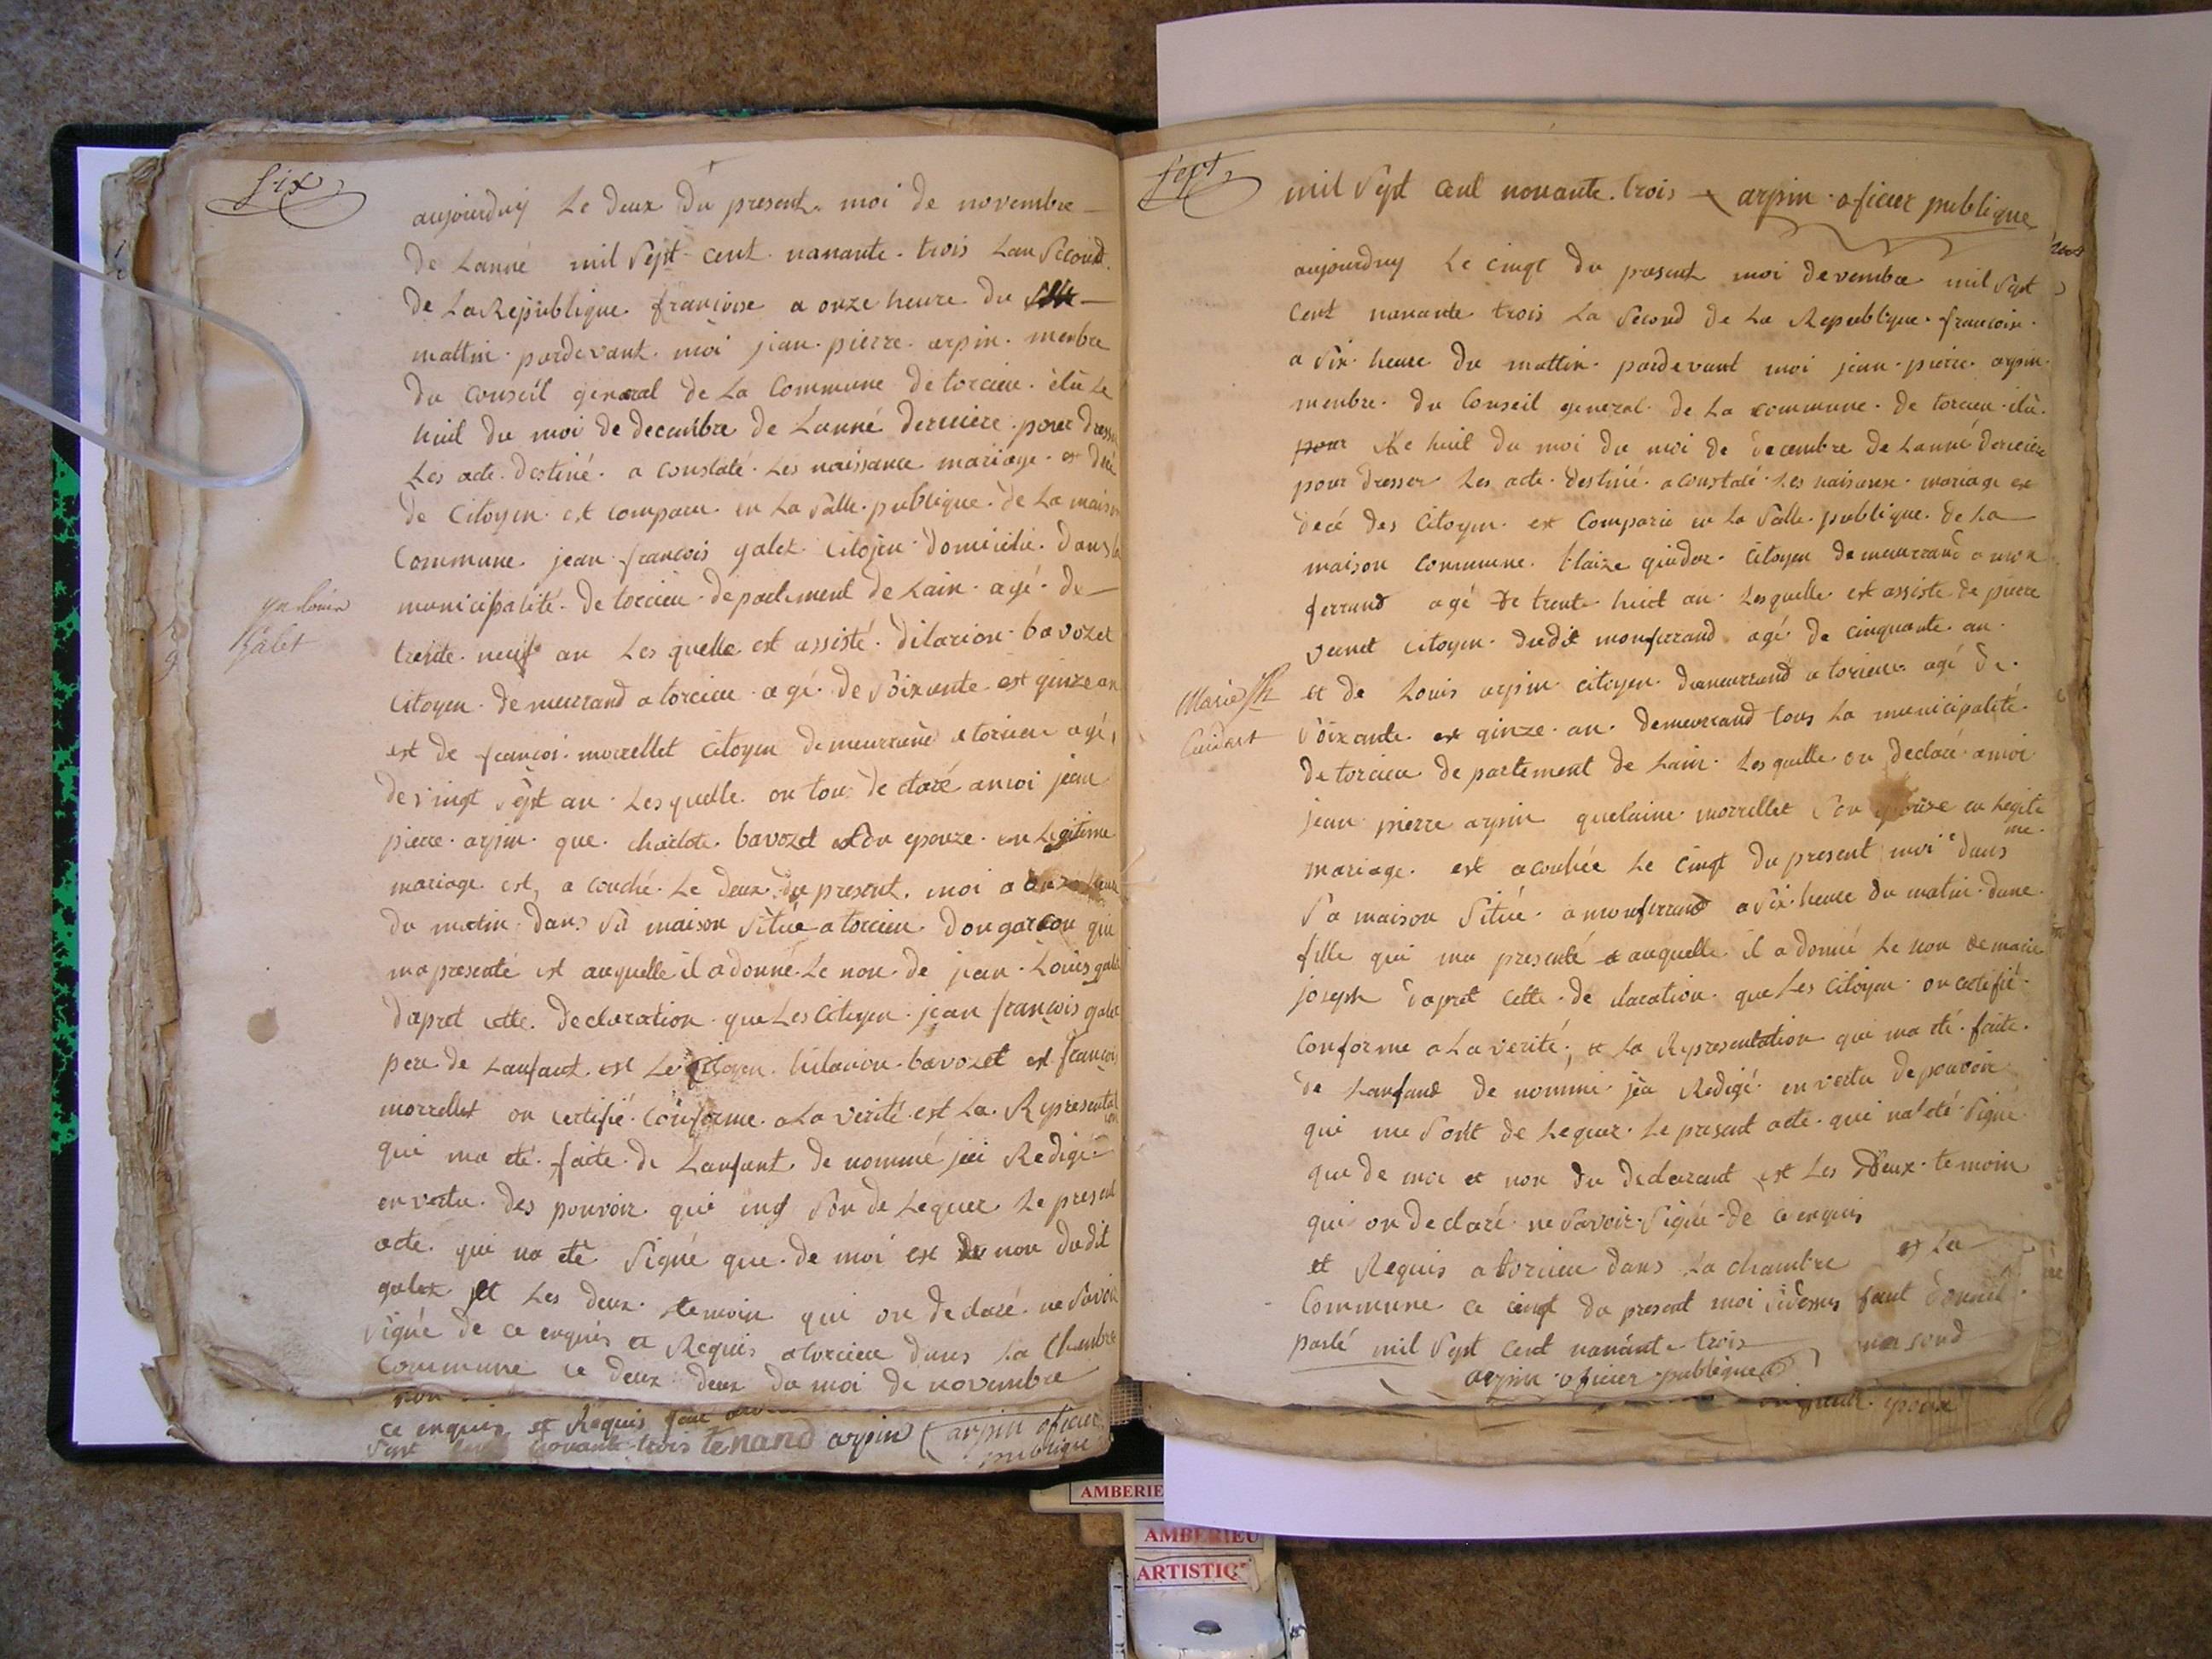 six
aujourduy Le deux du present moi de novembre
de Lanné mil Sept cent nanante trois Lan Second
de La Republique françoise a onze heure du
mattin pardevant moi jean pierre arpin menbre
du conseil general de La Commune de torcieu élû Le
huit du moi de decembre de Lanné derniere pour dresse
Les acte destiné a constaté Les naissance mariage et décé
de Citoyen est comparu en La Salle publique de La maison
Commune jean francois galet Citojen domicilié dans la
municipalité de torcieu departement de Lain agé de
jn louis
galet
trente neuf an Les quelle est assisté dilarion bavozet
Citoyen demeurrand a torcieu agé de Soixante est quinze an
est de françoi morrellet Citoyen demeurrand a torcieu agé
de vingt Sept an Les quelle on tou declaré a moi jean
pierre arpin que charlote bavozet Son epouze en Legitime
mariage est a couché Le deux du present moi a onze heure
du matin dans Sa maison Située a torcieu don garcon qui
ma presenté est auquelle il a donné Le non de jean Louis galet
dapret cette declaration que Les Citoyen jean françois galet
pere de Lanfant est Le Citoyen hilarion bavozet est françois
morrellet on certifié Conforme a La verité est La Representation
qui ma eté faite de Lanfant de nommé jéi Redigé
en vertu des pouvoir qui me Son de Leguer Le present
acte qui na eté Signé que de moi est non dudit
galet et Les deux temoin qui on declaré ne Savoir
signé de ce enquis et Requis a torcieu dans La Chambre
Commune ce deux deux du moi de novembre
non
ce enquis et Requis
Sept nonante trois tenand arpin arpin oficier
publique
sept
mil Sept cent nonante trois arpin oficier publique
aujourduy Le cinqt du present moi devembre mil Sept
cent nanante trois La Second de La Republique francoise
a Six heure du mattin pardevant moi jean pierre arpin
menbre du Conseil general de La commune de torcieu élû
pour Le huit du moi du moi de decembre de Lanné derniere
pour dresser Les acte destiné a constaté Les naisanse mariage est
decé des Citoyen est Comparu en La Salle publique de La
maison Commune blaize guidor Citoyen demeurrand a mon
ferrand agé de trente huit an Lesquelle est assisté de pierre
vernet Citoyen dudit monferrand agé de cinquante an
Marie Jh
Guidart
et de Louis arpin citoyen demeurrand a torcieu agé de
Soixante est quinze an demeurrand tous La municipalité
de torcieu departement de Lain Lesquelle on declaré a moi
jean pierre arpin quelaine morrellet Son epouse en Legiti
me
mariage est acouhée Le cinqt du present moi dans
Sa maison Située a monferrand a Six heure du matin dune
fille qui ma presenté a auquelle il a donné Le non de marie
joseph dapret cette declaration que Les Citoyen on certifié
Conforme a La verité, et La Representation qui ma été faite
de Lanfand de nommé jéa Redigé en vertu de pouvoir
qui me Sont de Leguer Le present acte qui na eté Signé
que de moi et non du declarant est Les deux temoin
qui on declaré ne Savoir Signé de ce enquis
et Requis a torcieu dans La chambre
Commune ce cinqt du present moi Sidessus
parlé mil Sept cent nanante trois
arpin oficier publique
et La
AMBERIEU
AMBERIEU
ARTISTIQ